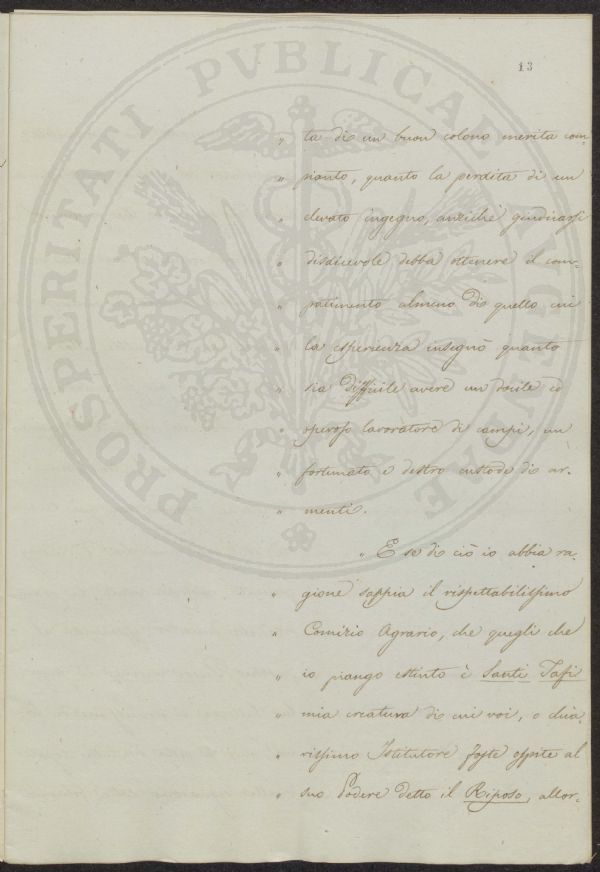 13
PROSPERITATI PVBLICAE AVGENDAE
" ta di un buon colono merita com-
" pianto, quanto la perdita di un
" elevato ingegno, anzichè giudicarsi
" disdicevole debba ottenere il com-
" patimento almeno di quello cui
" la esperienza insegnò quanto
" sia difficile avere un docile ed
" operoso lavoratore di campi, un
" fortunato e destro custode di ar-
" menti.
" E se di ciò io abbia ra-
" gione sappia il rispettabilissimo
" Comizio Agrario, che quegli che
" io piango estinto è Santi Tafi
" mia creatura di cui voi, o chia-
" rissimo Istitutore foste ospite al
" suo Podere detto il Riposo, allor-